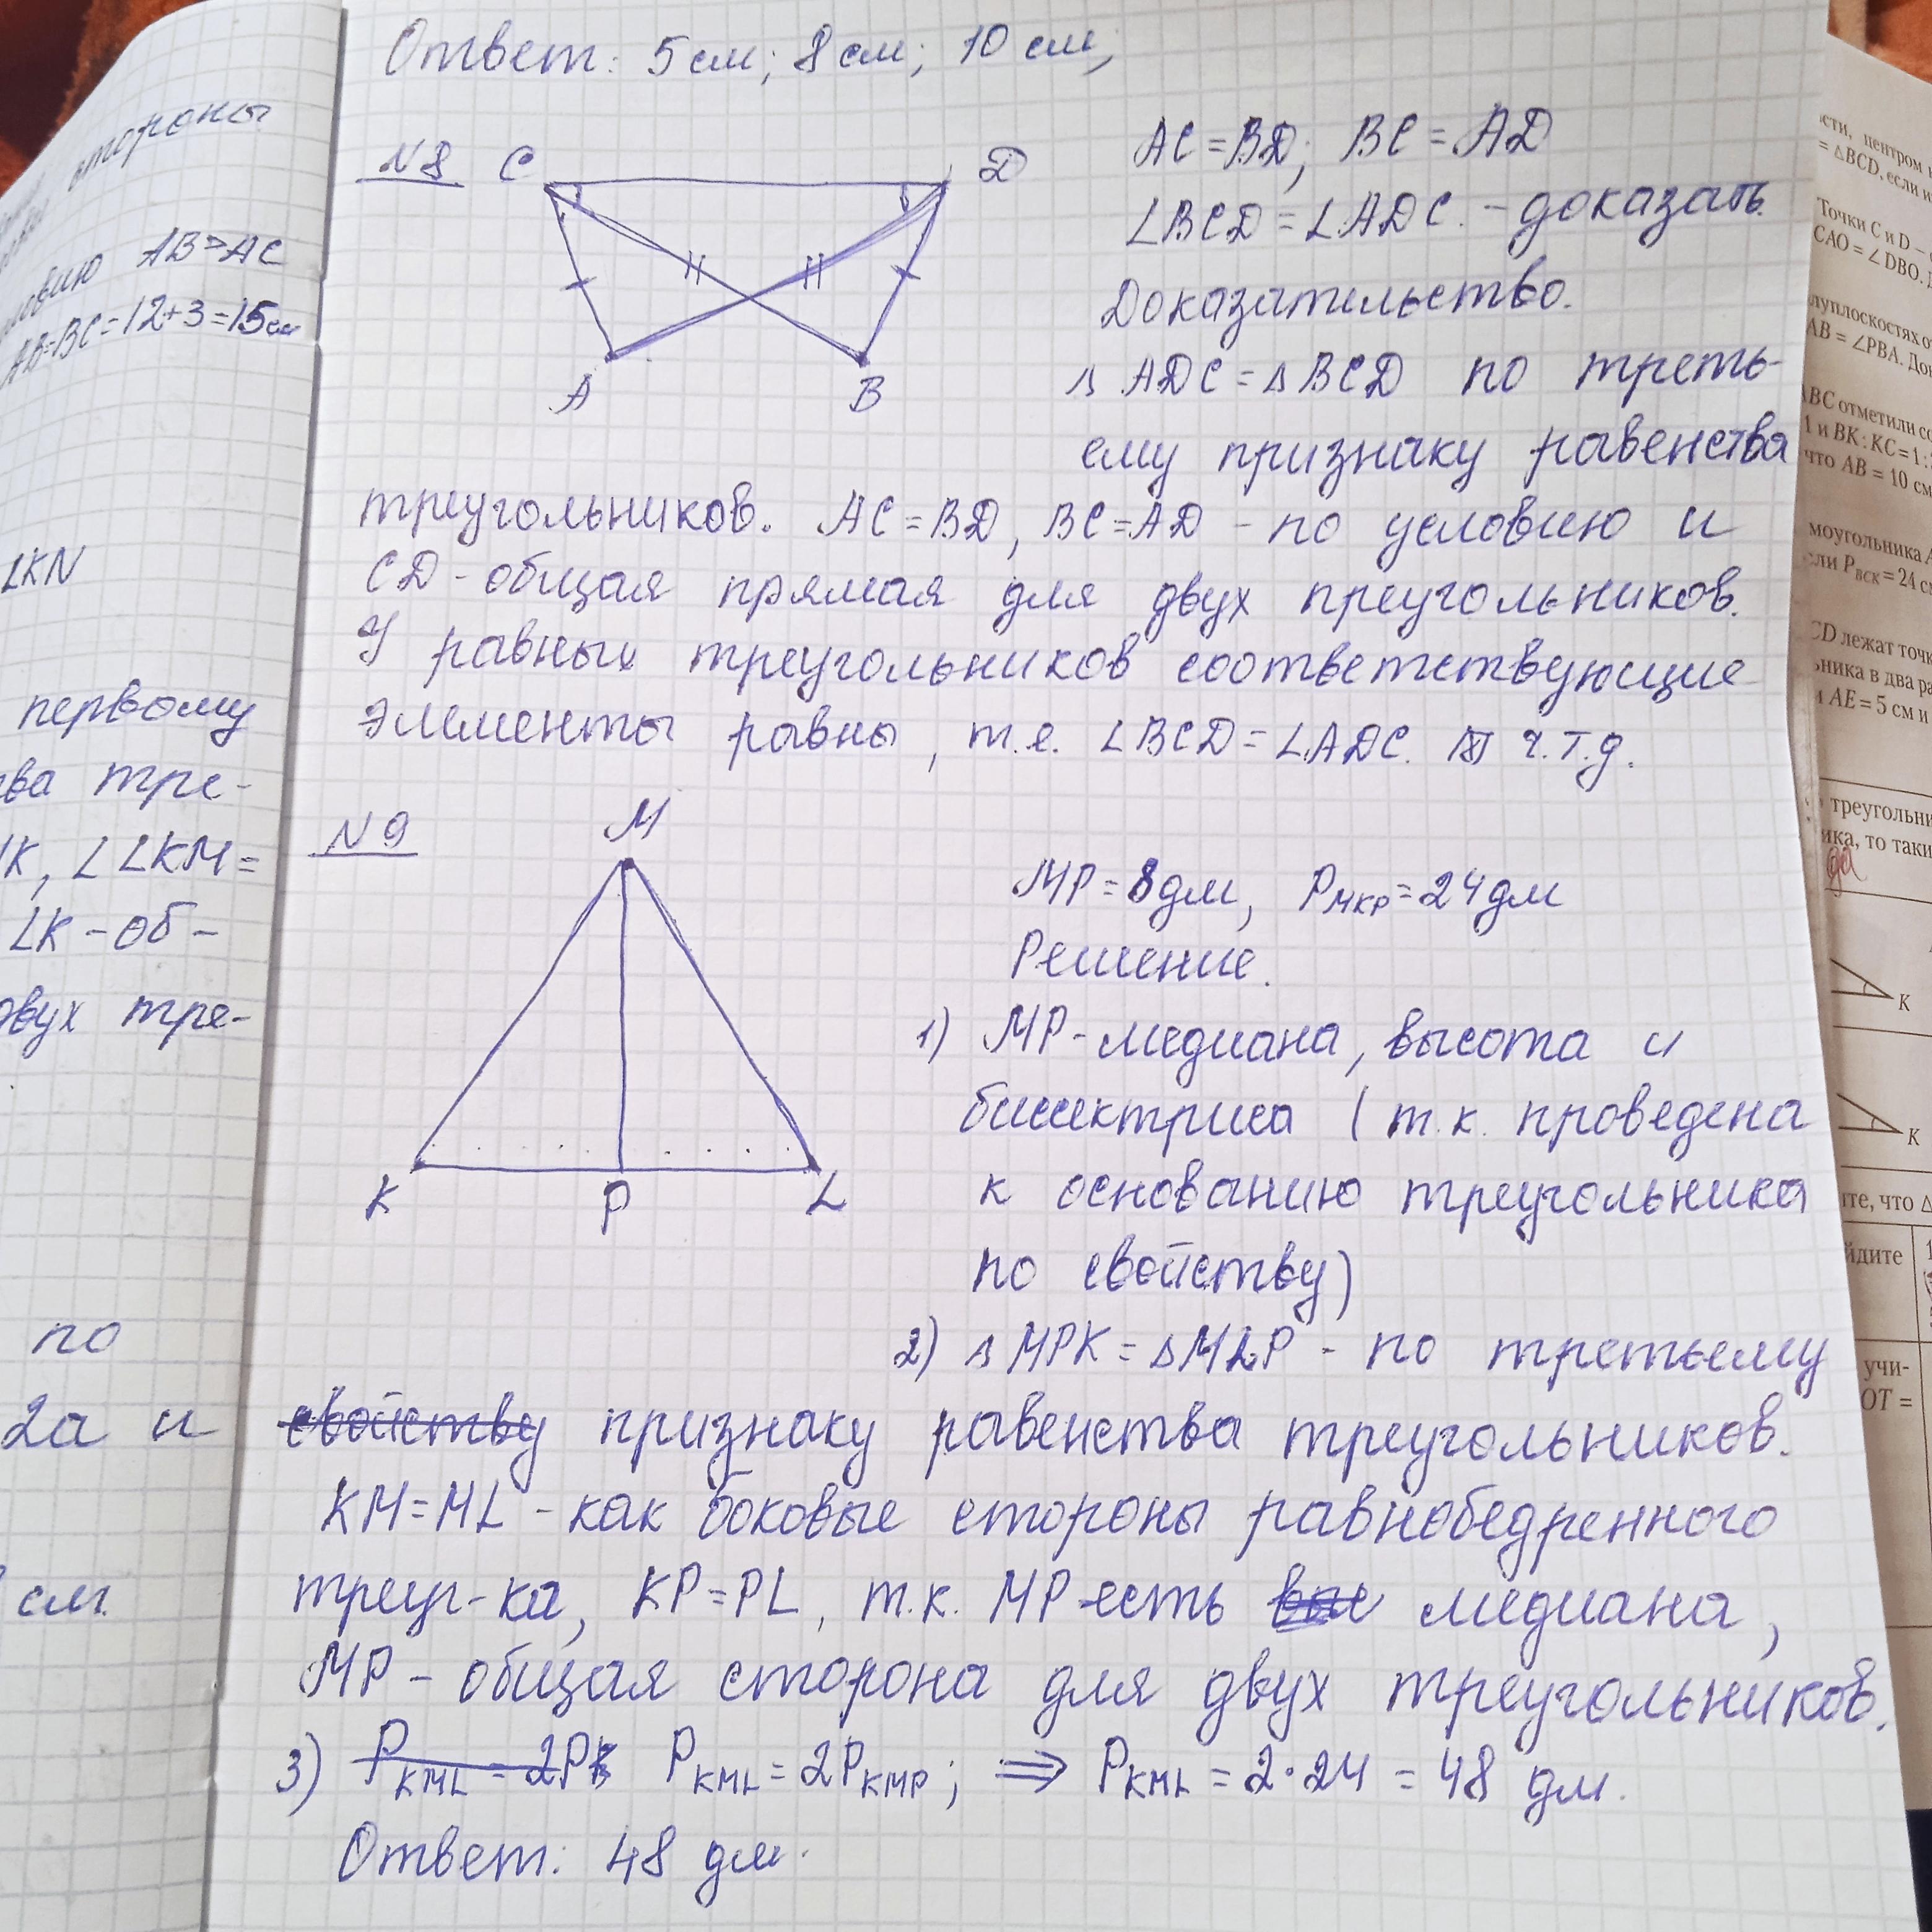 Ответ: 5 см; 8 см; 10 см;
стороны
AB=AC
AB=BC=12+3=15см
∠KN
первому
ва тре-
K, ∠LKM=
LK - об-
двух тре-
по
2a и
см.
N8
C
D
A
B
AC = BD; BC = AD
∠BCD = ∠ADC. - доказать.
Доказательство.
△ ADC = △ BCD по треть-
ему признаку равенства
треугольников. AC = BD, BC = AD - по условию и
CD - общая прямая для двух треугольников.
У равных треугольников соответствующие
элементы равны, т.е. ∠BCD = ∠ADC. ч.т.д.
N9
M
K
P
L
MP = 8дм, PMKP = 24дм
Решение.
1) MP - медиана, высота и
биссектриса (т.к. проведена
к основанию треугольника
по свойству)
2) △ MPK = △ MLP - по третьему
свойству признаку равенства треугольников.
KM = ML - как боковые стороны равнобедренного
треуг-ка, KP = PL, т.к. MP есть медиана,
MP - общая сторона для двух треугольников.
3) PKML = 2P PKML = 2PKMP; ⟹ PKML = 2·24 = 48 дм.
Ответ: 48 дм.
сти, центром
= △BCD, если и
Точки C и D –
CAO = ∠DBO.
луплоскостях о
AB = ∠PBA. До
ABC отметили
1 и BK : KC = 1 :
что AB = 10 см
моугольника
ли PBCK = 24 с
CD лежат точ
ника в два ра
AE = 5 см и
треугольни
ика, то таки
да
K
K
те, что △
йдите
учи-
OT =